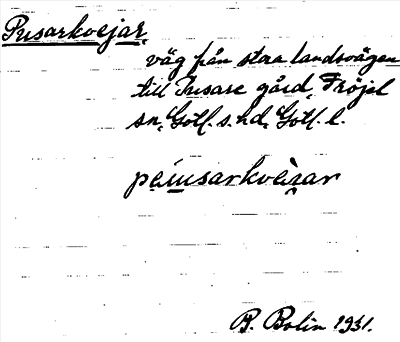 Pusarkvejar,
väg från stora landsvägen
till Pusare gård, Fröjel
sn, Gotl. s. hd, Gotl. l.
péiusarkvèiar
B. Bolin 1931.